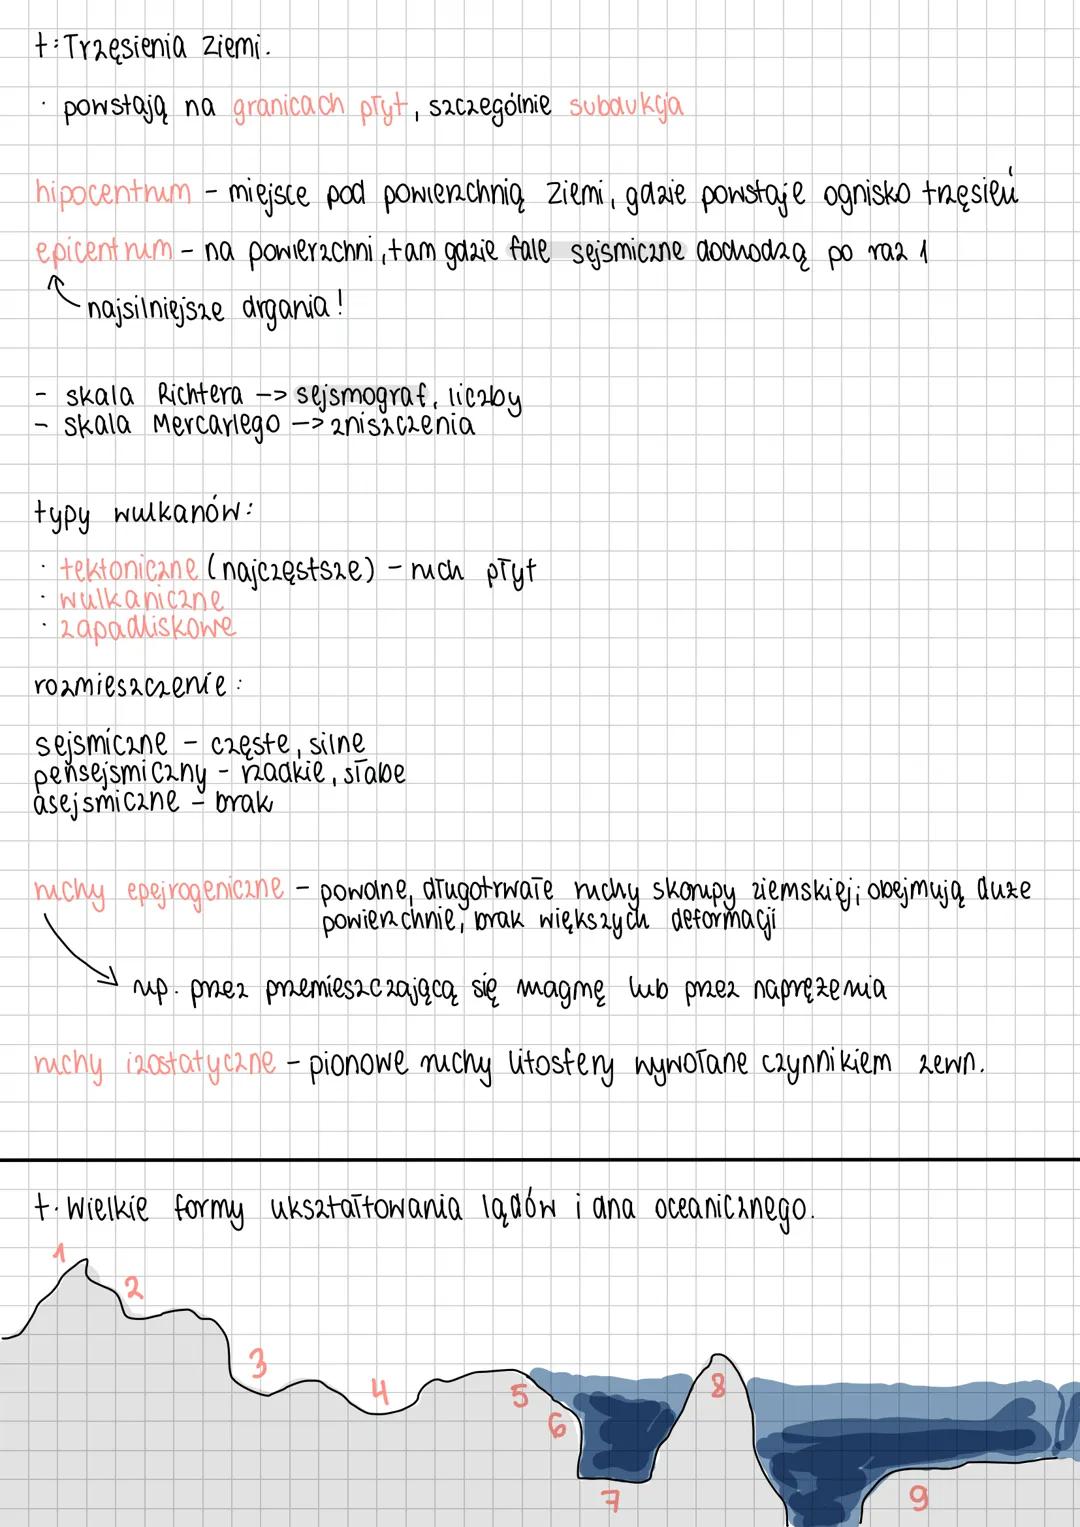 t: Trzęsienia ziemi.
· powstają na granicach płyt, szczególnie subdukcja
hipocentrum - miejsce pod powierzchnią ziemi, gdzie powstaje ognisko trzęsień
epicentrum - na powierzchni, tam gdzie fale sejsmiczne dochodzą po raz 1
najsilniejsze drgania!
- skala Richtera -> sejsmograf, liczby
- skala Mercarlego -> zniszczenia
typy wulkanów:
· tektoniczne (najczęstsze) - ruch płyt
· wulkaniczne
· zapadliskowe
rozmieszczenie:
sejsmiczne - częste, silne
pensejsmiczny - rzadkie, słabe
asejsmiczne - brak
ruchy epejrogeniczne - powolne, długotrwałe ruchy skorupy ziemskiej; obejmują duże
powierzchnie, brak większych deformacji
np. przez przemieszczającą się magmę lub przez naprężenia
ruchy izostatyczne - pionowe ruchy litosfery wywołane czynnikiem zewn.
t. Wielkie formy ukształtowania lądów i dna oceanicznego.
1
2
3
4
5
6
7
8
9